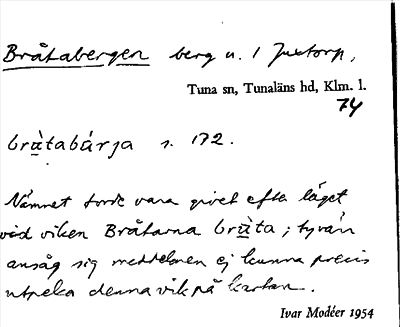 Bråtabergen berg n. / Juxtorp,
Tuna sn, Tunaläns hd, Klm. l.
74
bràtabárja s. 172.
Namnet torde vara givet efter läget
vid viken Bråtarna bràta; tyvärr
ansåg sig meddelaren ej kunna precis
utpeka denna vik på kartan.
Ivar Modéer 1954